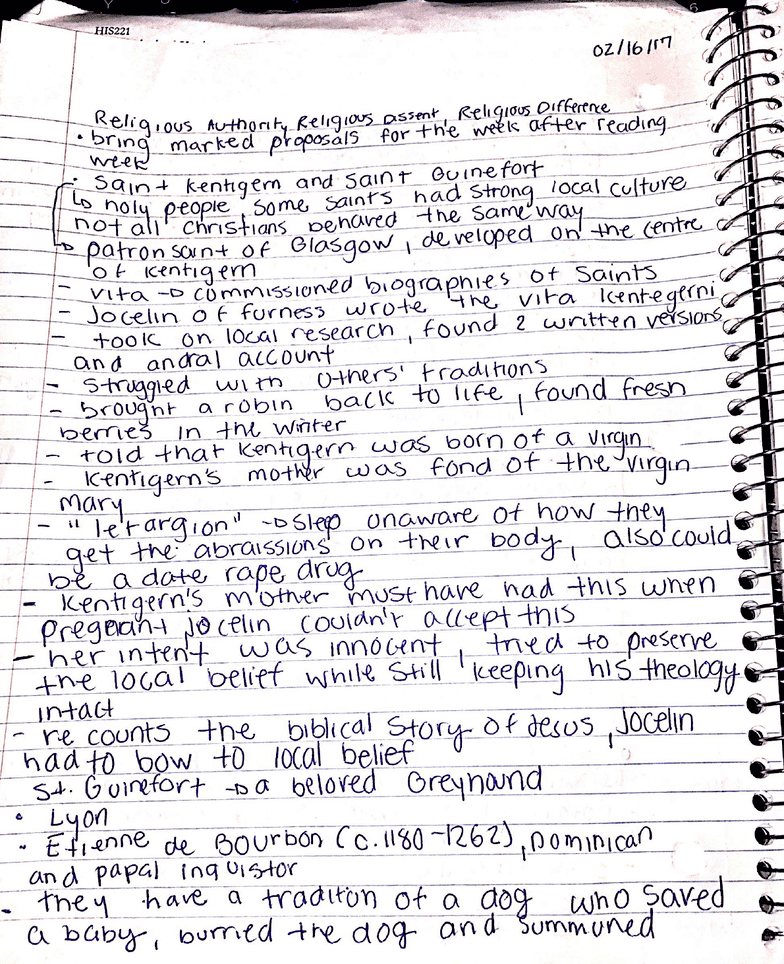 HIS221
02/16/17
Religious Authority, Religious Dissent, Religious Difference
• bring marked proposals for the week after reading
week
• Saint Kentigern and Saint Guinefort
↳ holy people, some saints had strong local culture
not all christians behaved the same way
↳ patron saint of Glasgow, developed on the centre
of Kentigern
- vita → commissioned biographies of Saints
- Jocelin of furness wrote the vita Kentegerni
- took on local research, found 2 written versions
and an oral account
- Struggled with others' traditions
- brought a robin back to life, found fresh
berries in the winter
- told that Kentigern was born of a virgin
- Kentigern's mother was fond of the virgin
mary
- "letargion" → sleep unaware of how they
get the abraissions on their body, also could
be a date rape drug
- Kentigern's mother must have had this when
pregnant, Jocelin couldn't accept this
- her intent was innocent, tried to preserve
the local belief while still keeping his theology
intact
- re counts the biblical story of Jesus, Jocelin
had to bow to local belief
St. Guinefort → a beloved Greyhound
• Lyon
• Etienne de Bourbon (c.1180-1262), Dominican
and papal inquistor
- they have a traditon of a dog who saved
a baby, burried the dog and summuned